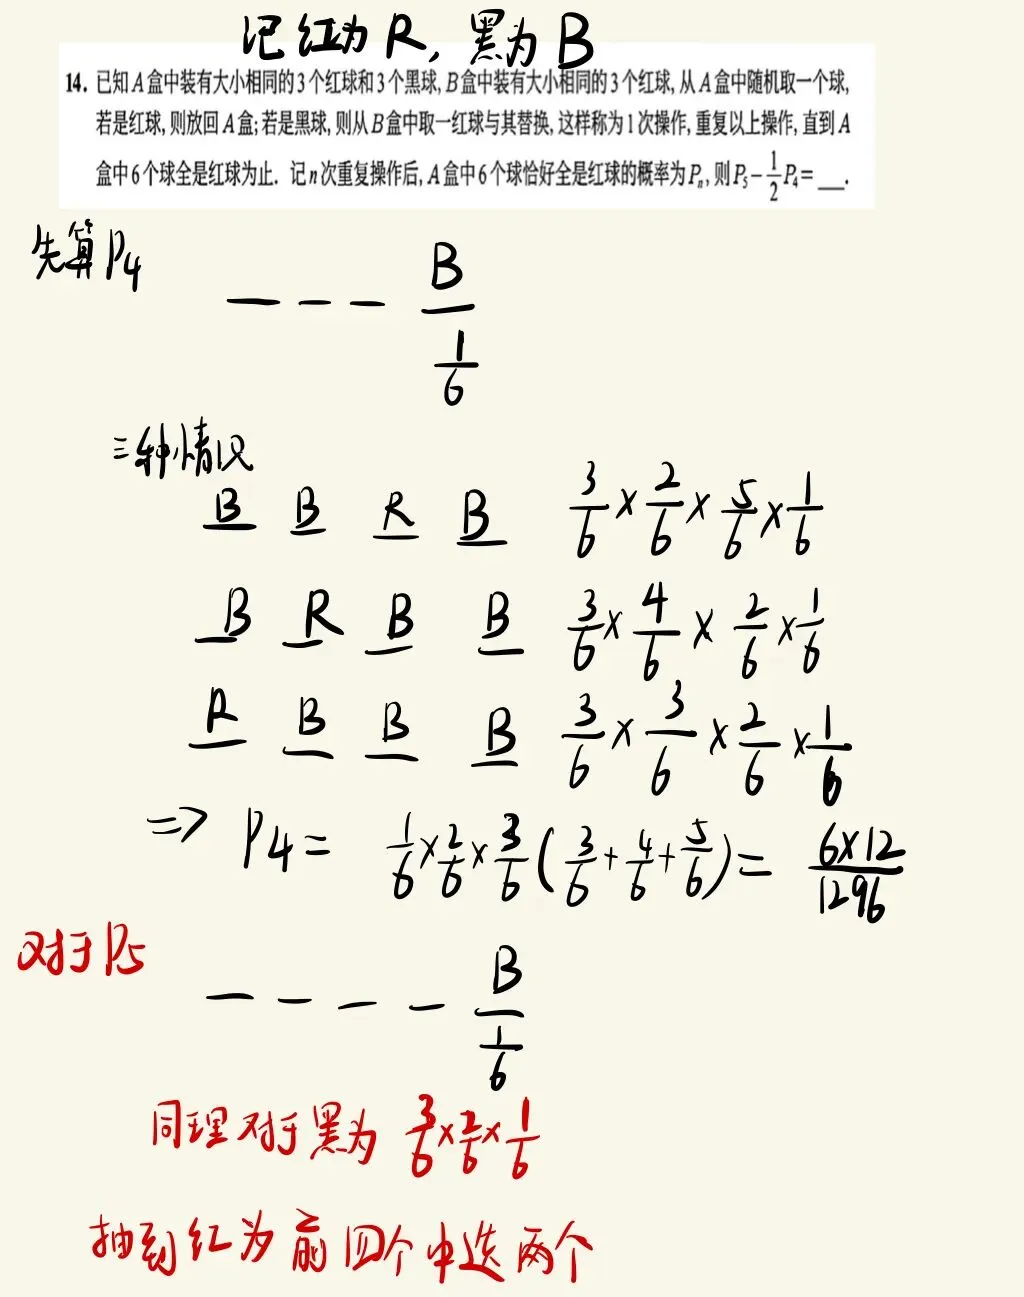 记红为R,黑为B
14. 已知A盒中装有大小相同的3个红球和3个黑球,B盒中装有大小相同的3个红球,从A盒中随机取一个球,
若是红球,则放回A盒;若是黑球,则从B盒中取一红球与其替换,这样称为1次操作,重复以上操作,直到A
盒中6个球全是红球为止. 记n次重复操作后,A盒中6个球恰好全是红球的概率为Pₙ,则P₅-1/2P₄=___.
先算P4
_ _ _ B
1/6
三种情况
B B R B 3/6×2/6×5/6×1/6
B R B B 3/6×4/6×2/6×1/6
R B B B 3/6×3/6×2/6×1/6
=> P4= 1/6×2/6×3/6(3/6+4/6+5/6)= 6×12/1296
对于P5
_ _ _ _ B
1/6
同理对于黑为 3/6×2/6×1/6
抽到红为前四个中选两个